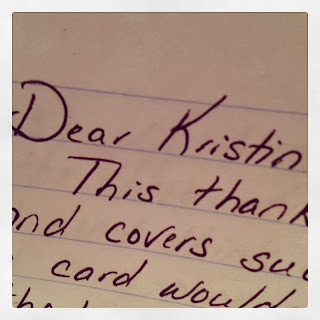 Dear Kristin
This thank
and covers su
card would